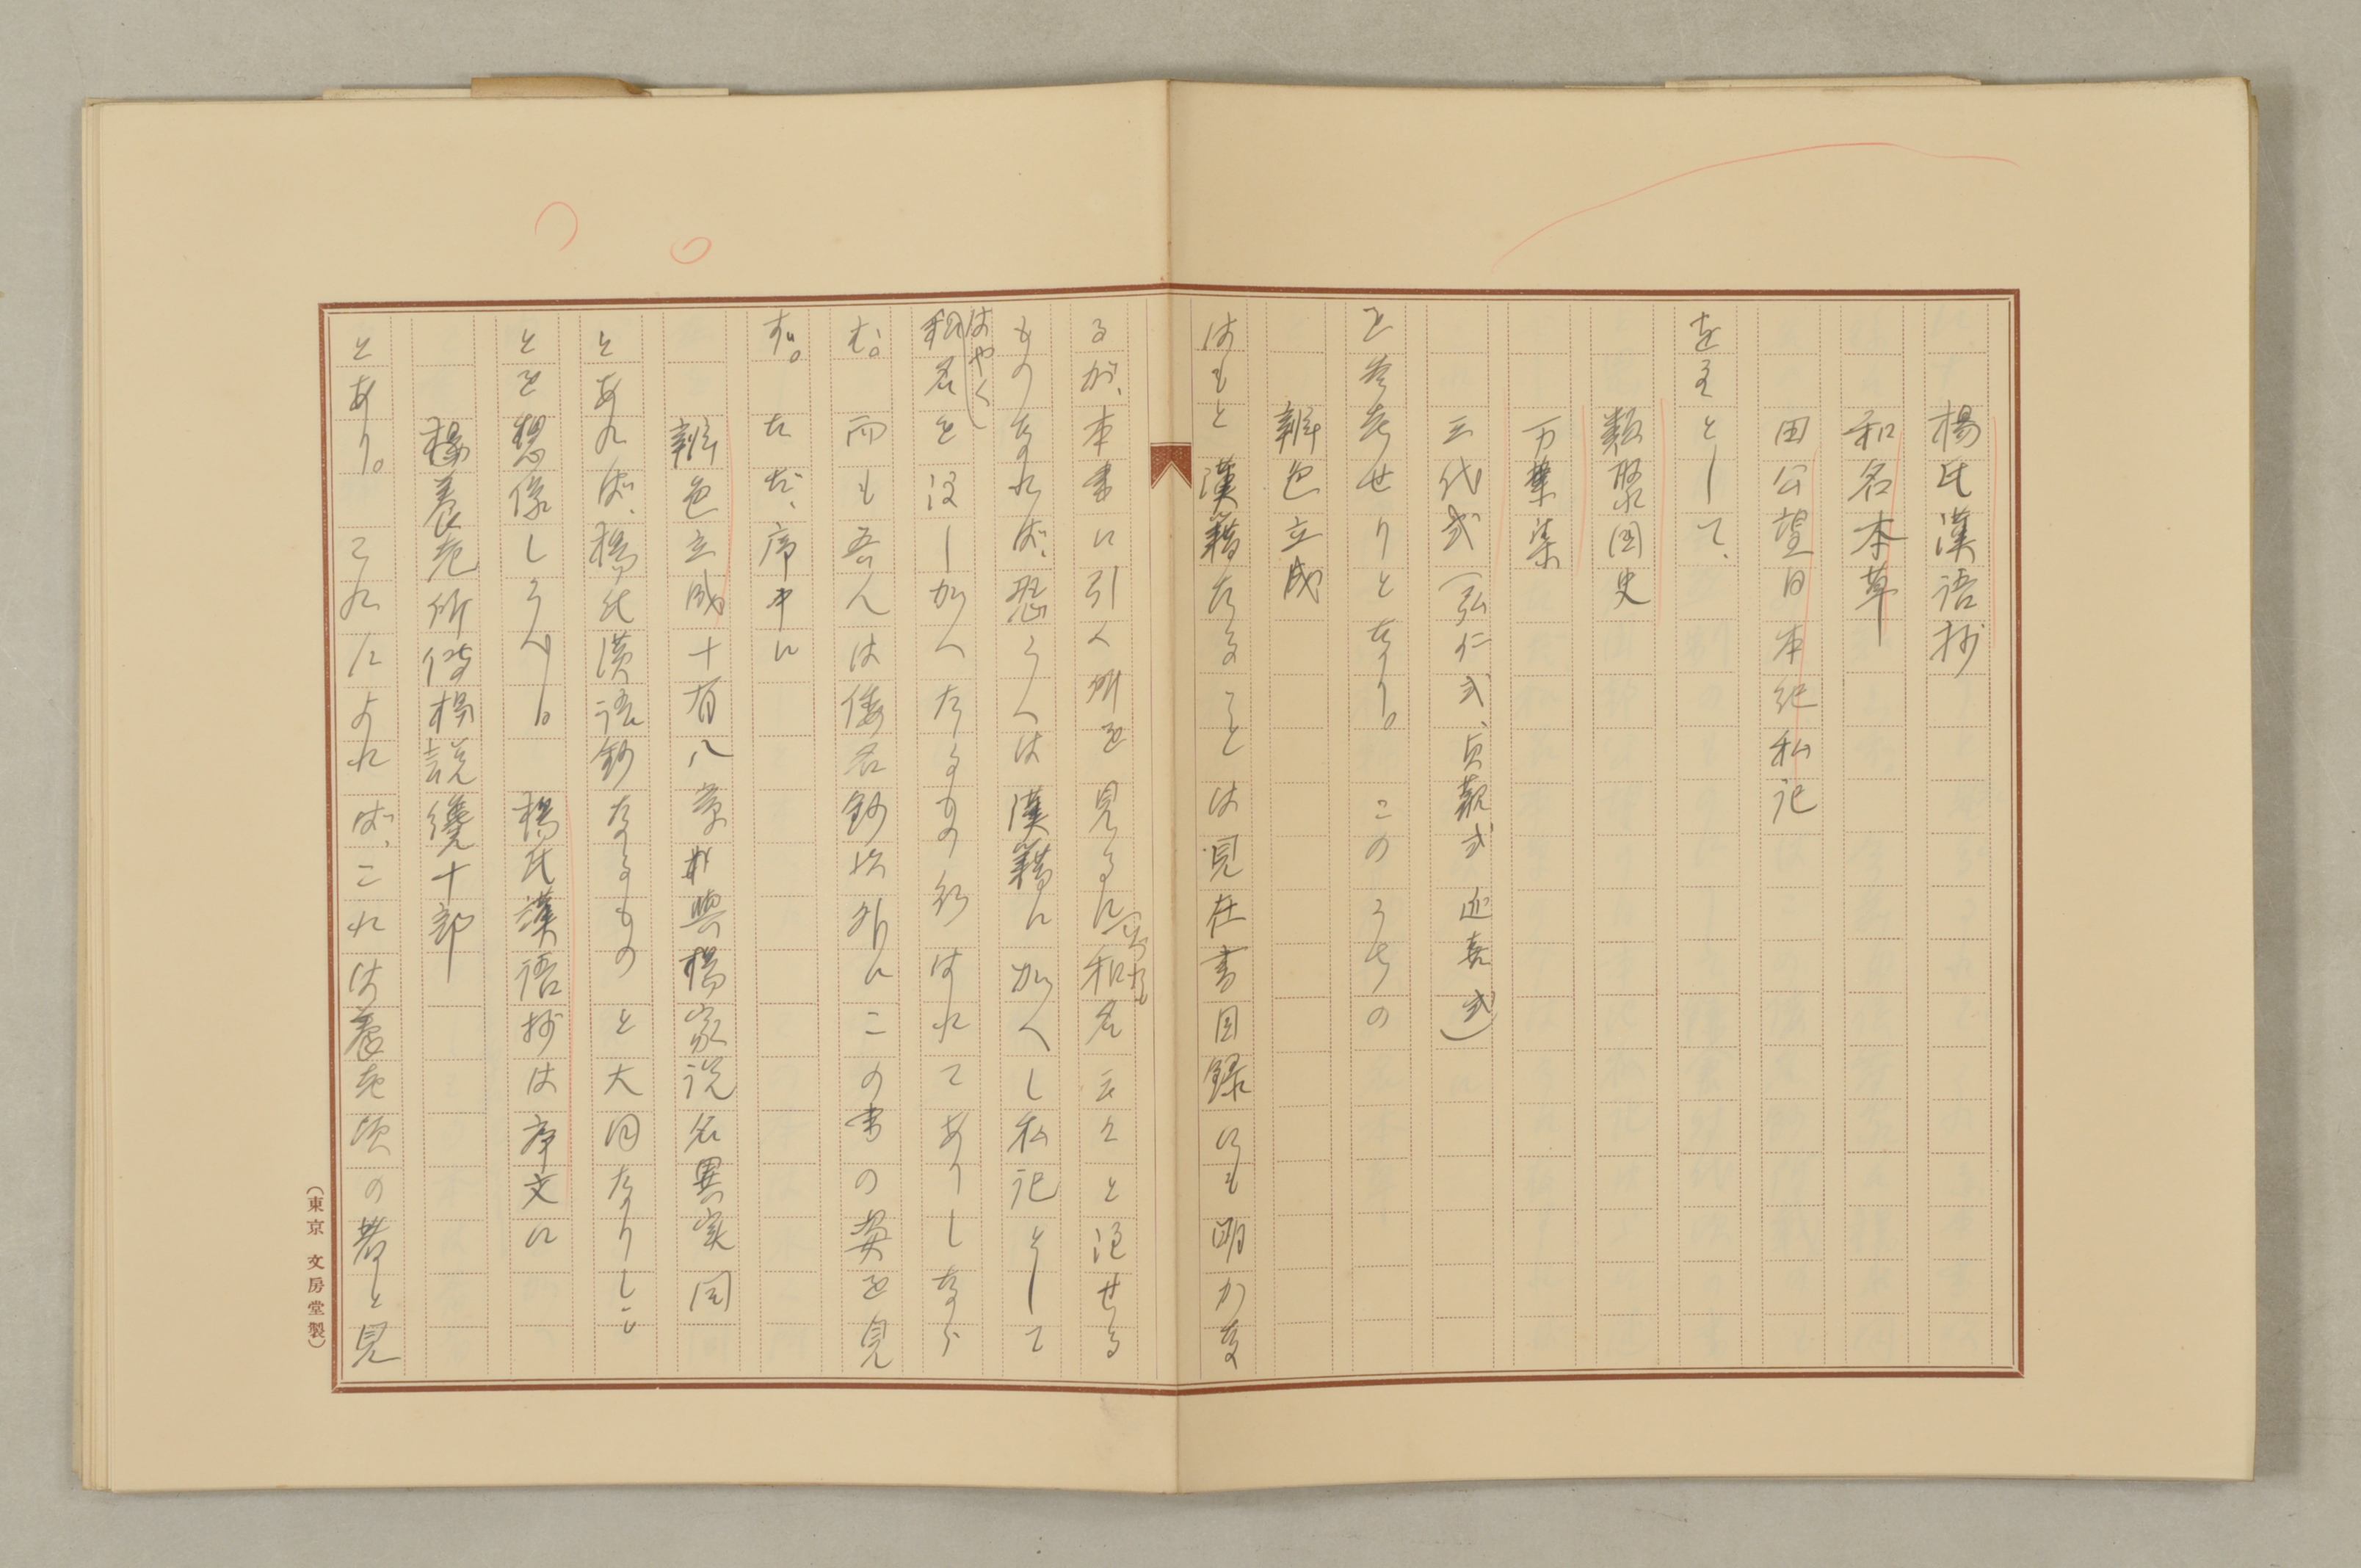 楊氏漢語抄
和名本草
田公望日本紀私記
を主として、
類聚国史
万葉集
三代式(弘仁式、貞観式 延喜式)
を参考せりとなり。 このうちの
辨色立成
はもと漢籍なることは見在書目録にも明かな
るが、本書に引く所を見るに和名云々と注せる
ものなれば、恐らくは漢籍に加へし私記として
はやく
和名を注しかへたるもの行はれてありしなら
む。而も吾人は倭名鈔以外にこの書の姿を見
ず。ただ、序中に
辨色立成十有八章与楊家説名異実同
とあれば、楊氏漢語鈔なるものと大同なりしこ
とを想像しうべし。 楊氏漢語抄は序文に
楊養老所伝楊説纔十部
とあり。 これによれば、これは養老頃の書と見
(東京 文房堂製)